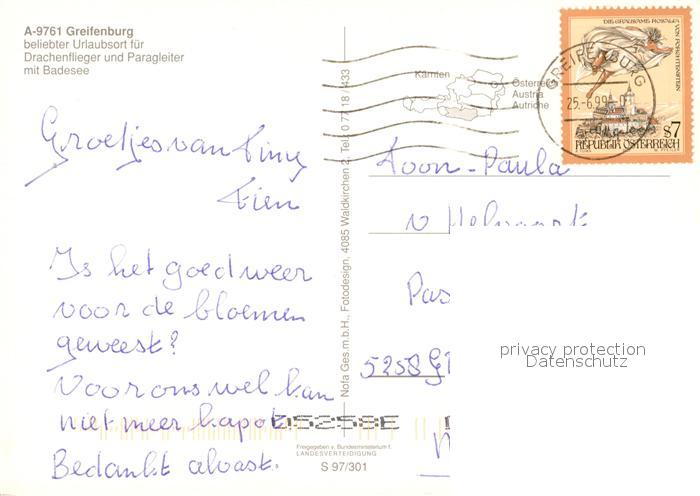 A-9761 Greifenburg
beliebter Urlaubsort für
Drachenflieger und Paragleiter
mit Badesee
Groetjes van Tiny
Tien
Is het goed weer
voor de bloemen
geweest?
Voor ons wel kan
niet meer kapot
Bedankt alvast.
Nofa Ges.m.b.H., Fotodesign, 4085 Waldkirchen 2, Tel. 0 77 18 / 433
Kärnten
Österreich
Austria
Autriche
GREIFENBURG
25.-6.99
DIE GRAUSAME ROSALIA
VON FORCHTENSTEIN
S7
REPUBLIK ÖSTERREICH
Toon-Paula
v Helvoort
Pas
5258
privacy protection
Datenschutz
05258E
Freigegeben v. Bundesministerium f.
LANDESVERTEIDIGUNG
S 97/301